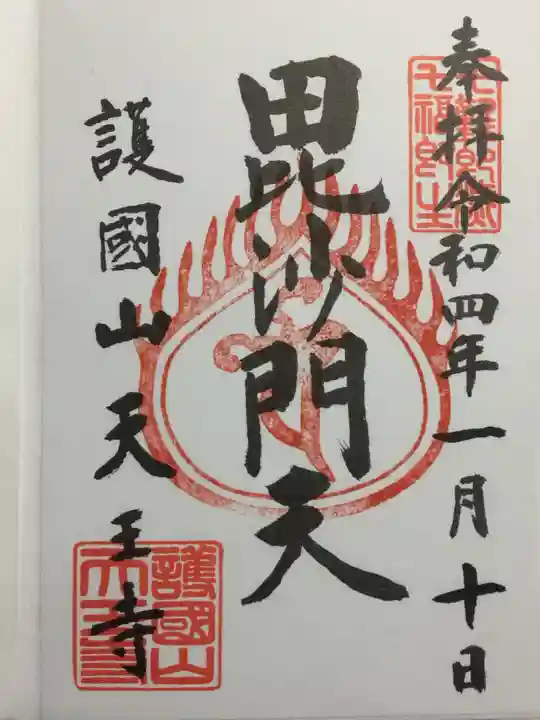 奉拝令和四年一月十日
毘沙門天
護國山天王寺
七難即滅
七福即生
護國山
天王寺